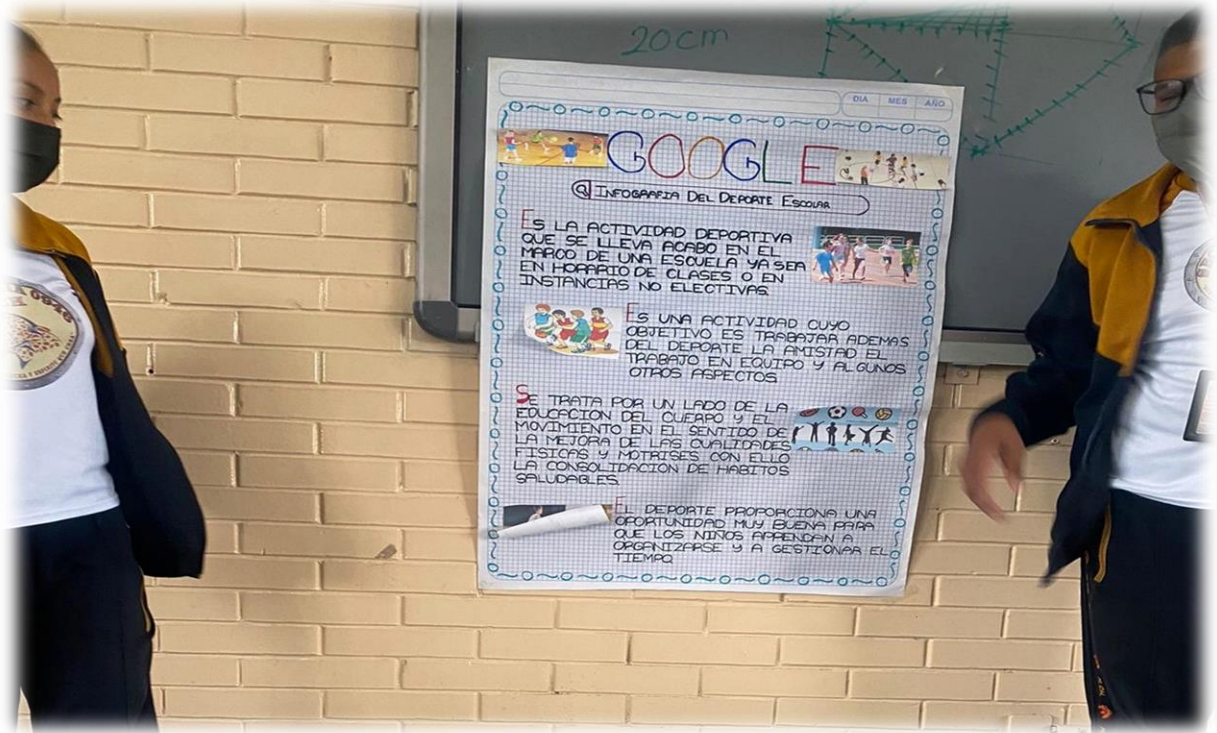 20cm
DIA MES AÑO
GOOGLE
INFOGRAFIA DEL DEPORTE ESCOLAR
ES LA ACTIVIDAD DEPORTIVA
QUE SE LLEVA ACABO EN EL
MARCO DE UNA ESCUELA YA SEA
EN HORARIO DE CLASES O EN
INSTANCIAS NO ELECTIVAS.
ES UNA ACTIVIDAD CUYO
OBJETIVO ES TRABAJAR ADEMAS
DEL DEPORTE LA AMISTAD EL
TRABAJO EN EQUIPO Y ALGUNOS
OTROS ASPECTOS.
SE TRATA POR UN LADO DE LA
EDUCACION DEL CUERPO Y EL
MOVIMIENTO EN EL SENTIDO DE
LA MEJORA DE LAS CUALIDADES
FISICAS Y MOTRISES CON ELLO
LA CONSOLIDACION DE HABITOS
SALUDABLES.
EL DEPORTE PROPORCIONA UNA
OPORTUNIDAD MUY BUENA PARA
QUE LOS NIÑOS APRENDAN A
ORGANIZARSE Y A GESTIONAR EL
TIEMPO.